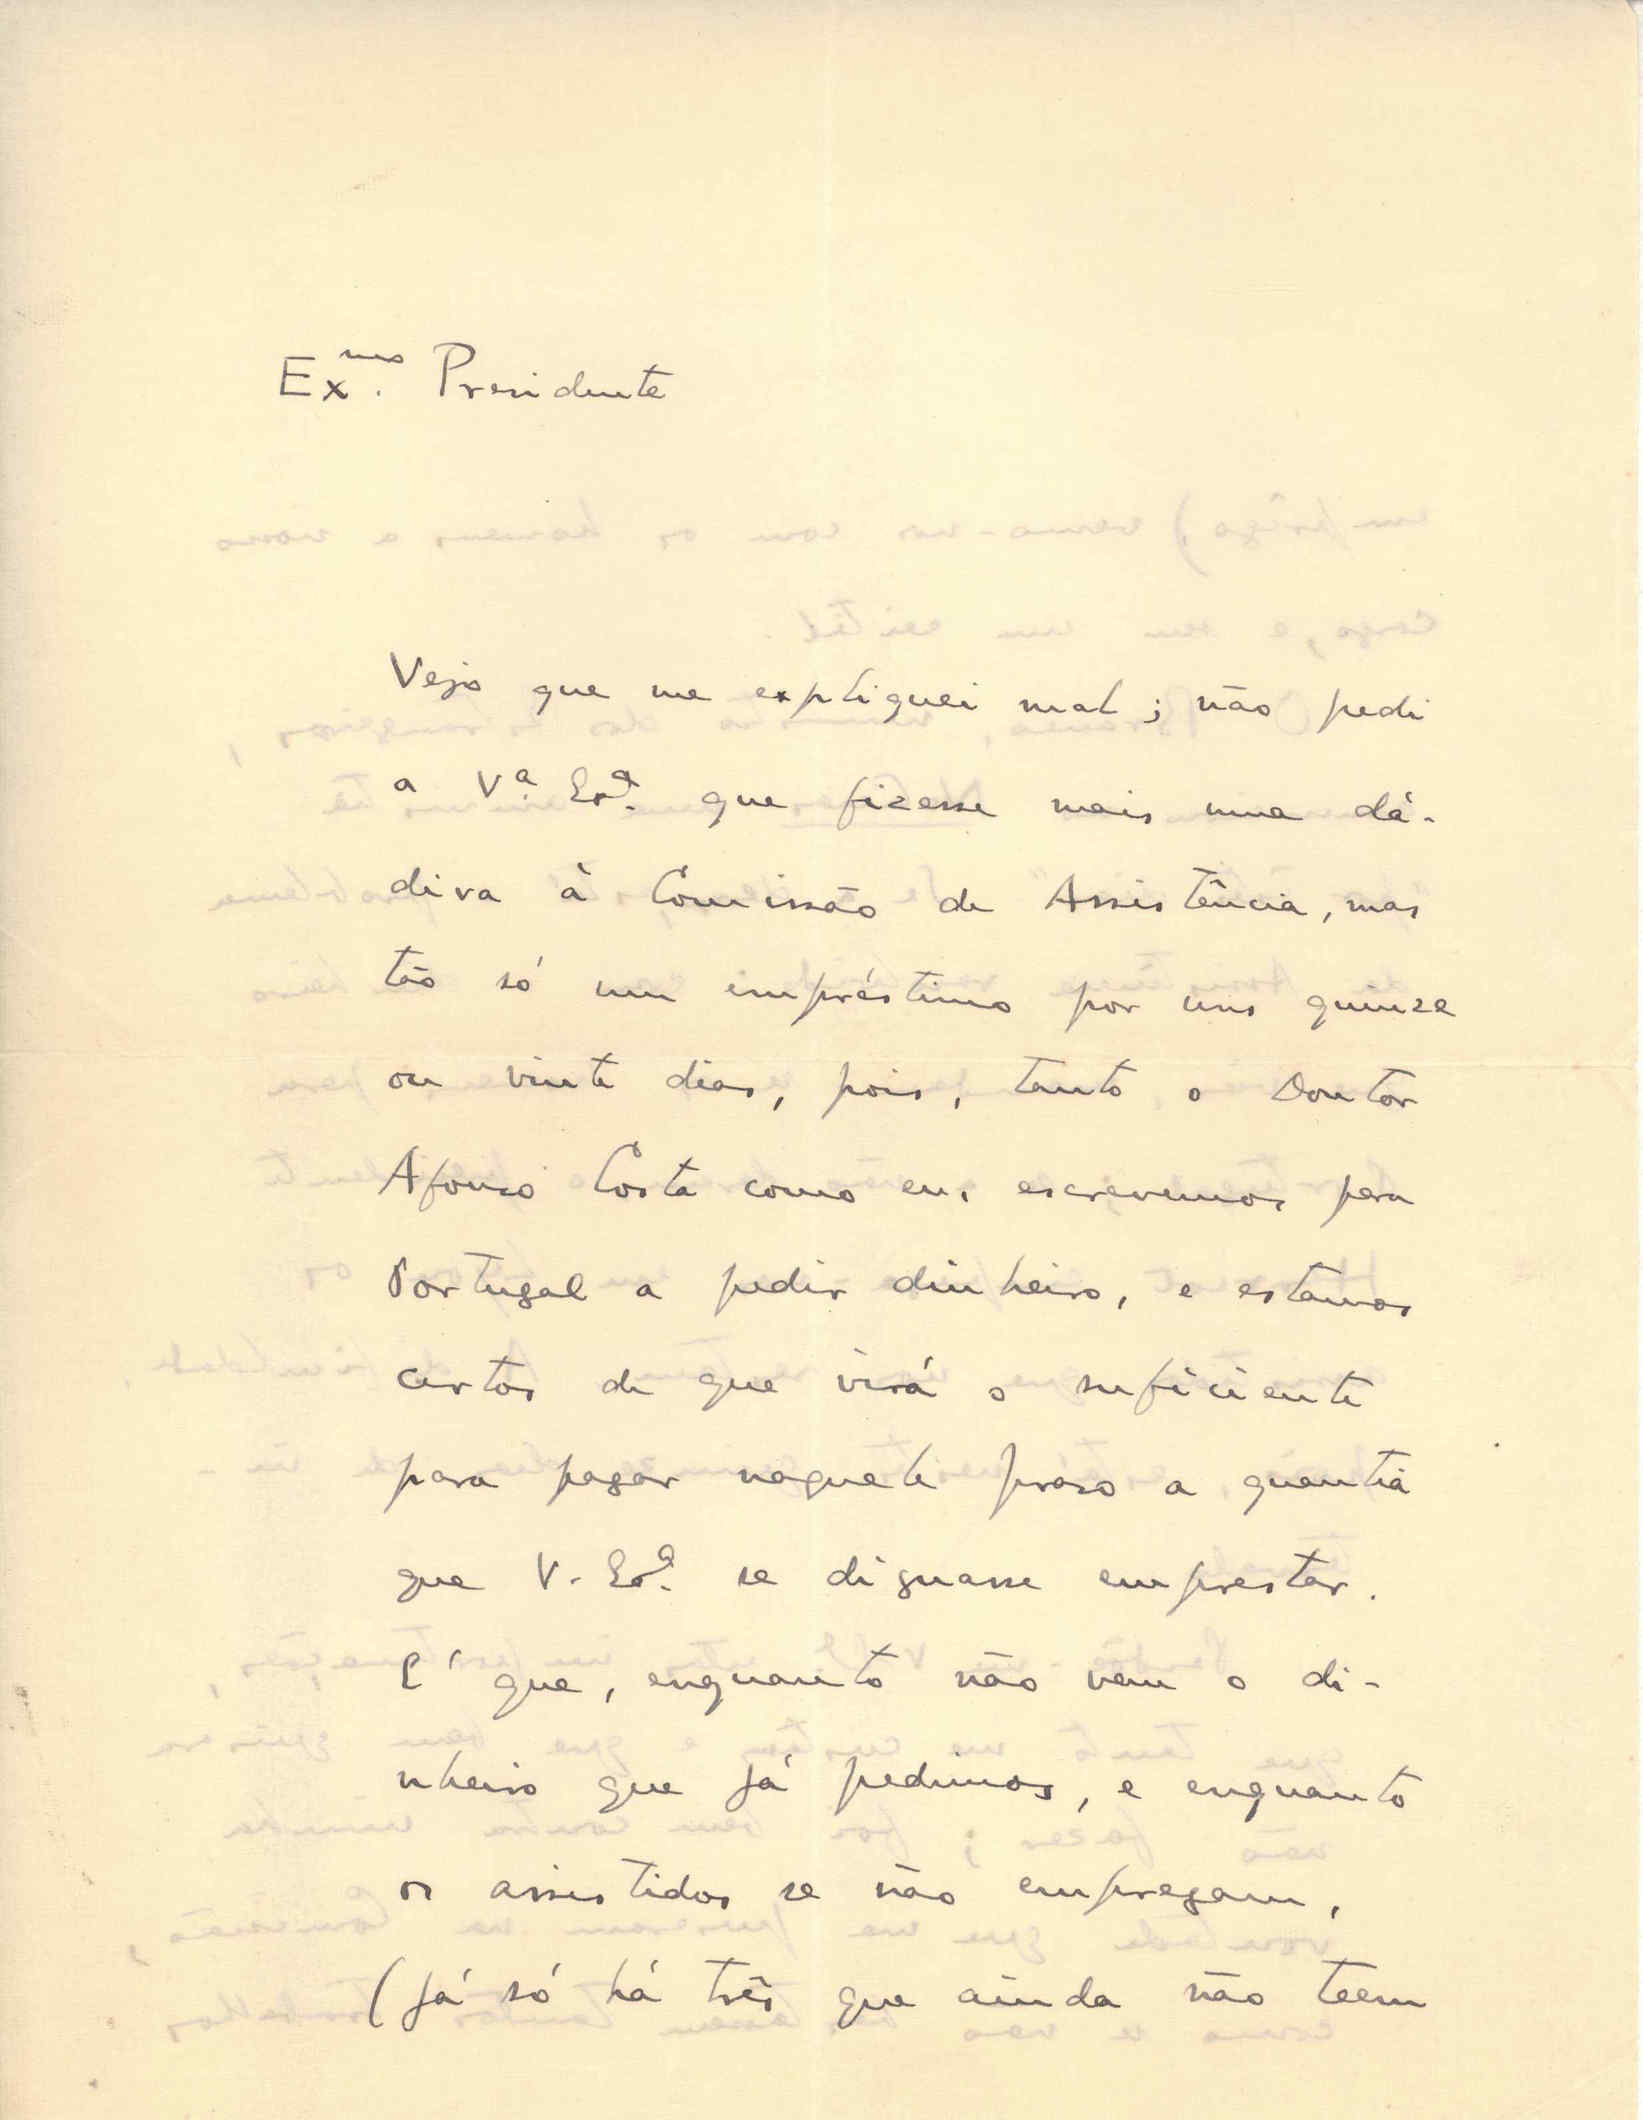 Ex.mo Presidente
Vejo que me expliquei mal; não pedi
a V.ª Ex.ª que fizesse mais uma dá-
diva à Comissão de Assistência, mas
tão só um empréstimo por uns quinze
ou vinte dias, pois, tanto o Doutor
Afonso Costa como eu, escrevemos para
Portugal a pedir dinheiro, e estamos
certos de que virá o suficiente
para pagar naquele praso a quantia
que V. Ex.ª se dignasse emprestar.
E' que, enquanto não vem o di-
nheiro que já pedimos, e enquanto
os assistidos se não empregam,
(já só há três que ainda não teem